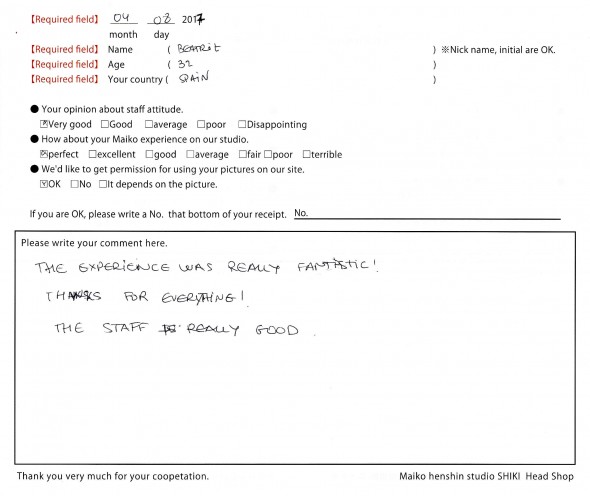 【Required field】 04 03 2017
month day
【Required field】 Name ( BEATRIZ ) ※Nick name, initial are OK.
【Required field】 Age ( 32 )
【Required field】 Your country ( SPAIN )
● Your opinion about staff attitude.
☑Very good □Good □average □poor □Disappointing
● How about your Maiko experience on our studio.
☑perfect □excellent □good □average □fair □poor □terrible
● We'd like to get permission for using your pictures on our site.
☑OK □No □It depends on the picture.
If you are OK, please write a No. that bottom of your receipt. No.
Please write your comment here.
THE EXPERIENCE WAS REALLY FANTASTIC!
THANKS FOR EVERYTHING!
THE STAFF IS REALLY GOOD.
Thank you very much for your coopetation. Maiko henshin studio SHIKI Head Shop